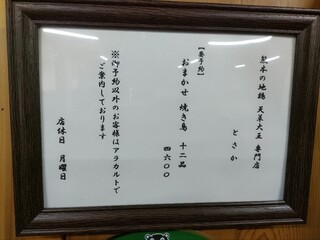 熊本の地鶏 天草大王 専門店
とさか
【要予約】
おまかせ 焼き鳥 十二品
四六〇〇
※ご予約以外のお客様はアラカルトで
ご案内しております
店休日 月曜日